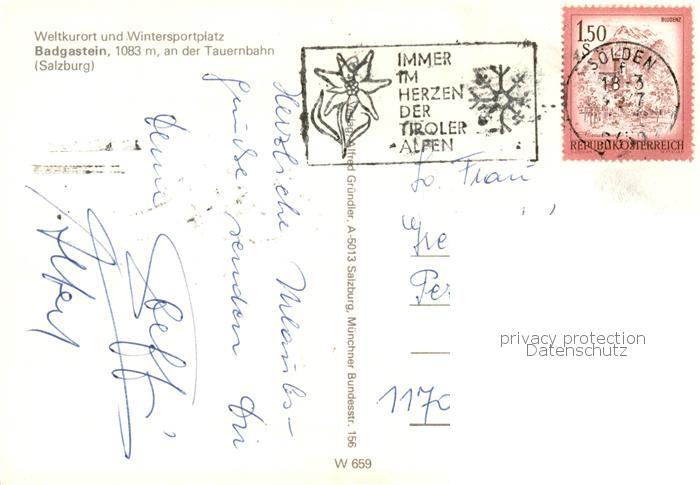 Weltkurort und Wintersportplatz
Badgastein, 1083 m, an der Tauernbahn
(Salzburg)
IMMER
IM
HERZEN
DER
TIROLER
ALPEN
BLUDENZ
1.50
S
SÖLDEN
18-3
REPUBLIK ÖSTERREICH
Herzliche Urlaubs-
grüße senden Dir
Deine
Albert
Alfred Gründler, A-5013 Salzburg, Münchner Bundesstr. 156
Frau
1170
privacy protection
Datenschutz
W 659